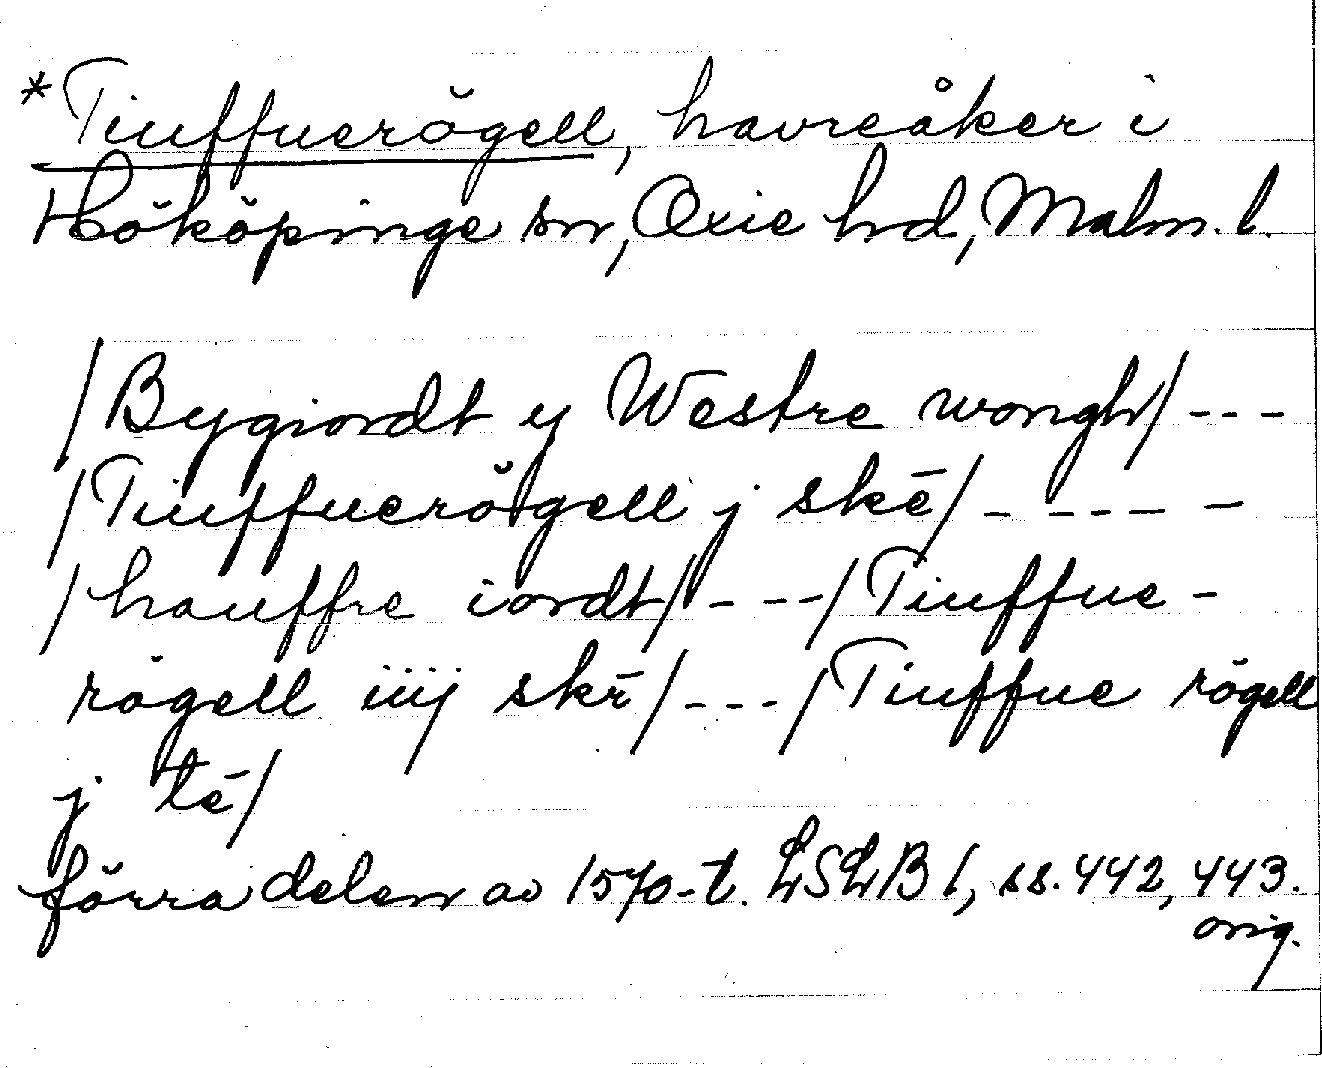 *Tiuffuerögell, havreåker i
Hököpinge sn, Oxie hd, Malm. l.
/Bygiordt y Westre wongh/ ---
/Tiuffuerögell j skē/ - --- -
/hauffre iordt/ ---/Tiuffue-
rögell iiij skē/ ---/Tiuffue rögell
j tē/
förra delen av 1570-t. LSLB 1, ss. 442, 443.
orig.